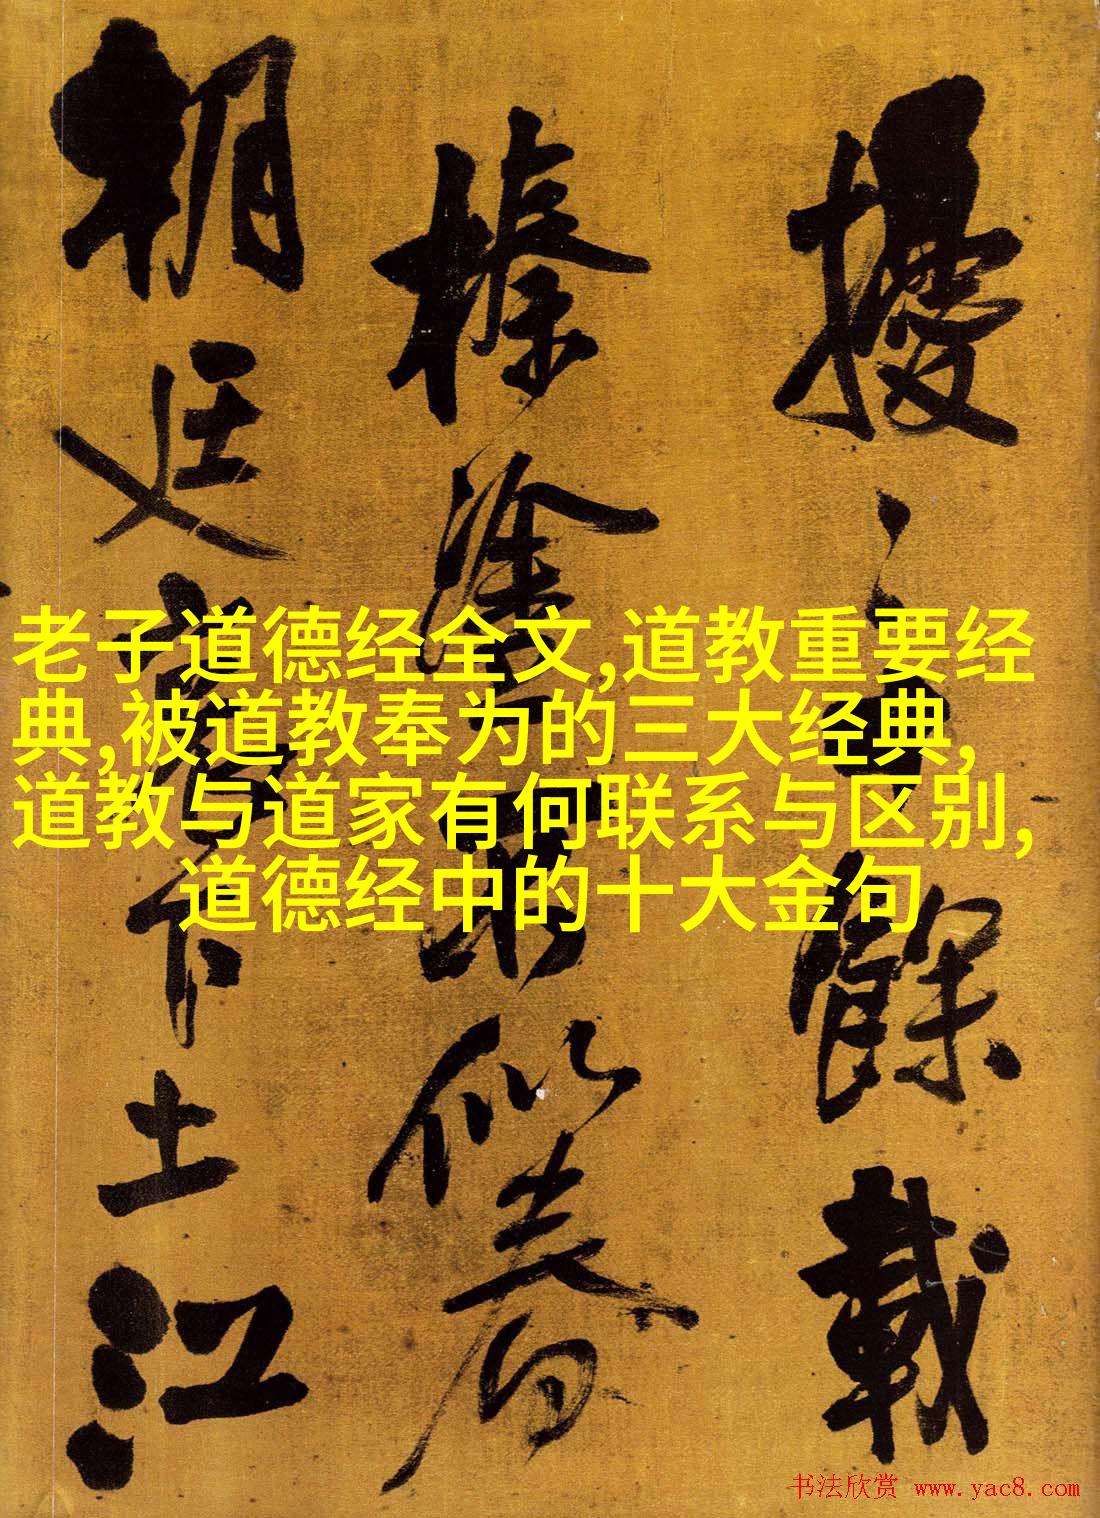 老子道德经全文,道教重要经
典,被道教奉为的三大经典,
道教与道家有何联系与区别,
道德经中的十大金句
擾之餘載
榛塗似
朝廷下土江
书法欣赏 www.yac8.com